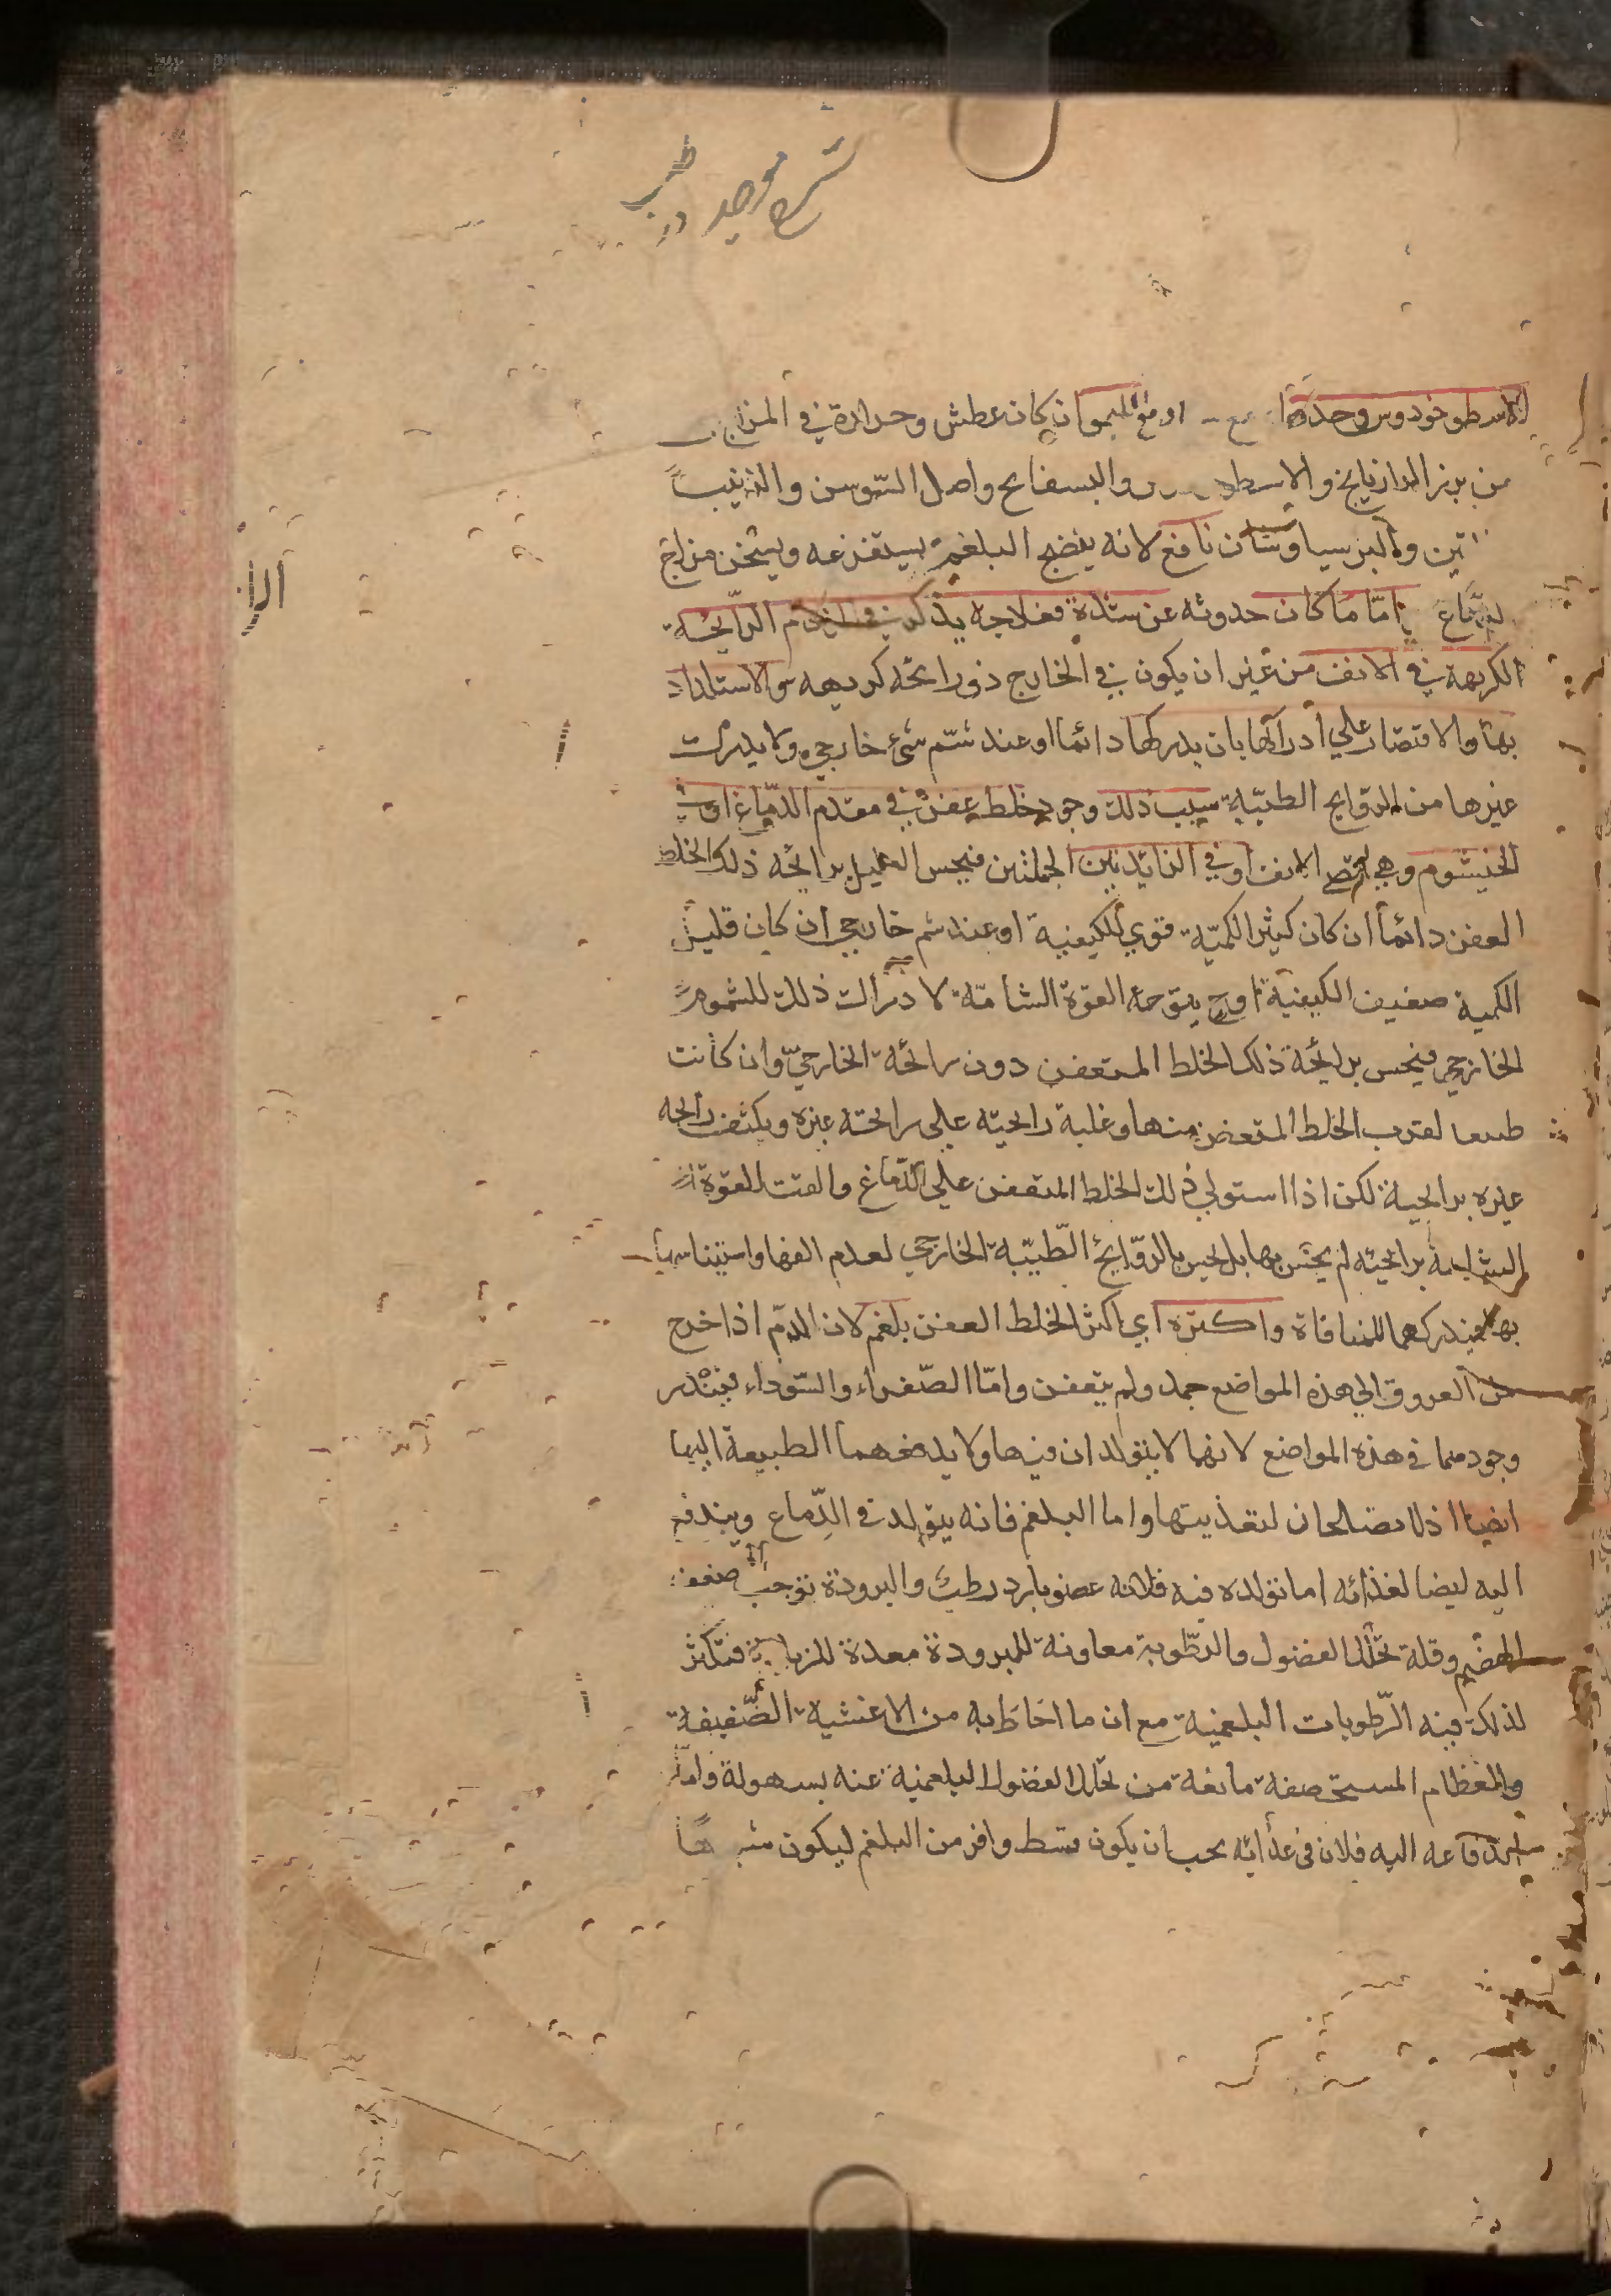 شرح موجز در طب
الاسطوخودوس وحدها او مع الليمو ان كان عطش وحرارة في المزاج
من بزر الرازيانج والاسطو والبسفايج واصل السوسن والزبيب
تين والبرسياوشان نافع لانه ينضج البلغم ويستفرغه ويسخن مزاج
الدماغ امّا ما كان حدوثه عن سدة فعلاجه يذكر في الرائحة
الكريهة في الانف من غير ان يكون في الخارج ذو رائحة كريهه والاستلذاذ
بها والاقتصار علي ادراكها بان يدركها دائما او عند شمّ شئ خارجي ولا يدرك
غيرها من الروايح الطيّبة سبب ذلك وجود خلط عفن في مقدم الدّماغ او في
الخيشوم وهي الانف او في الزايدتين الحلمتين فيحس العليل برائحة ذلك الخلط
العفن دائما ان كان كثير الكميّة قوي الكيفية او عند شم خارجي ان كان قليل
الكمية ضعيف الكيفية اوح يتوجه القوة الشامّة لادراك ذلك المشموم
الخارجي فيحس برايحة ذلك الخلط المتعفن دون رائحة الخارجيّ وان كانت
طيبه لقرب الخلط المتعفن منها وغلبة رايحته علي رايحته غيره ويكيف رايحه
غيره برايحية لكن اذا استولي ذلك الخلط المتعفن علي الدّماغ والفت القوة
الشامة برايحته لم يحسّ بها بل يحس بالرّوايح الطّيّبة الخارجي لعدم الفها واستيناسها
بها فيدركهما للمنافاة واكثره اي اكثر الخلط العفن بلغم لان الدم اذا خرج
من العروق الي هذه المواضع جمد ولم يتعفن وامّا الصّفراء والسّوداء فيندر
وجودهما في هذه المواضع لانهما لا يتولدان فيها ولا يدفعهما الطبيعة اليها
ايضا اذ لا يصلحان لتغذيتها واما البلغم فانه يتولد في الدّماغ ويندفع
اليه ايضا لغذائه اما تولده فيه فلانه عضو بارد رطب والبرودة توجب ضعف
الهضم وقلة تحلّل الفضول والرّطوبة معاونة للبرودة معدة للزيادة فتكثر
لذلك فيه الرّطوبات البلغمية مع ان ما احاط به من الاغشية الضّفيفة
والعظام المستحصفة مانعة من تحلل الفضول البلغمية عنه بسهولة وامّا
اندفاعه اليه فلان في غذائه يجب ان يكون قسط وافر من البلغم ليكون شبيها